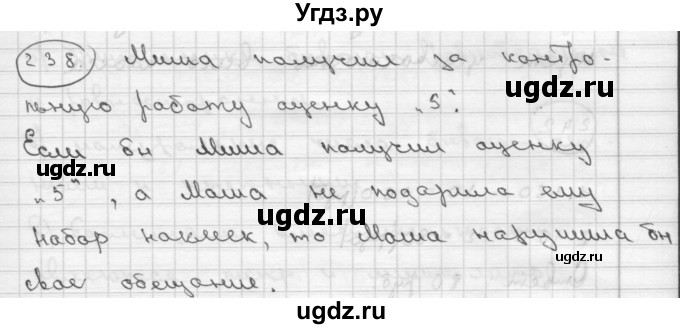 Угдз.ру
238 Миша получил за контро-
ugdz.ru ugdz.ru
льную работу оценку „5".
Если бы Миша получил оценку
ugdz.ru ugdz.ru
„5", а Маша не подарила ему
ugdz.ru ugdz.ru
набор наклеек, то Маша нарушила бы
свое обещание.
ugdz.ru
ugdz.ru